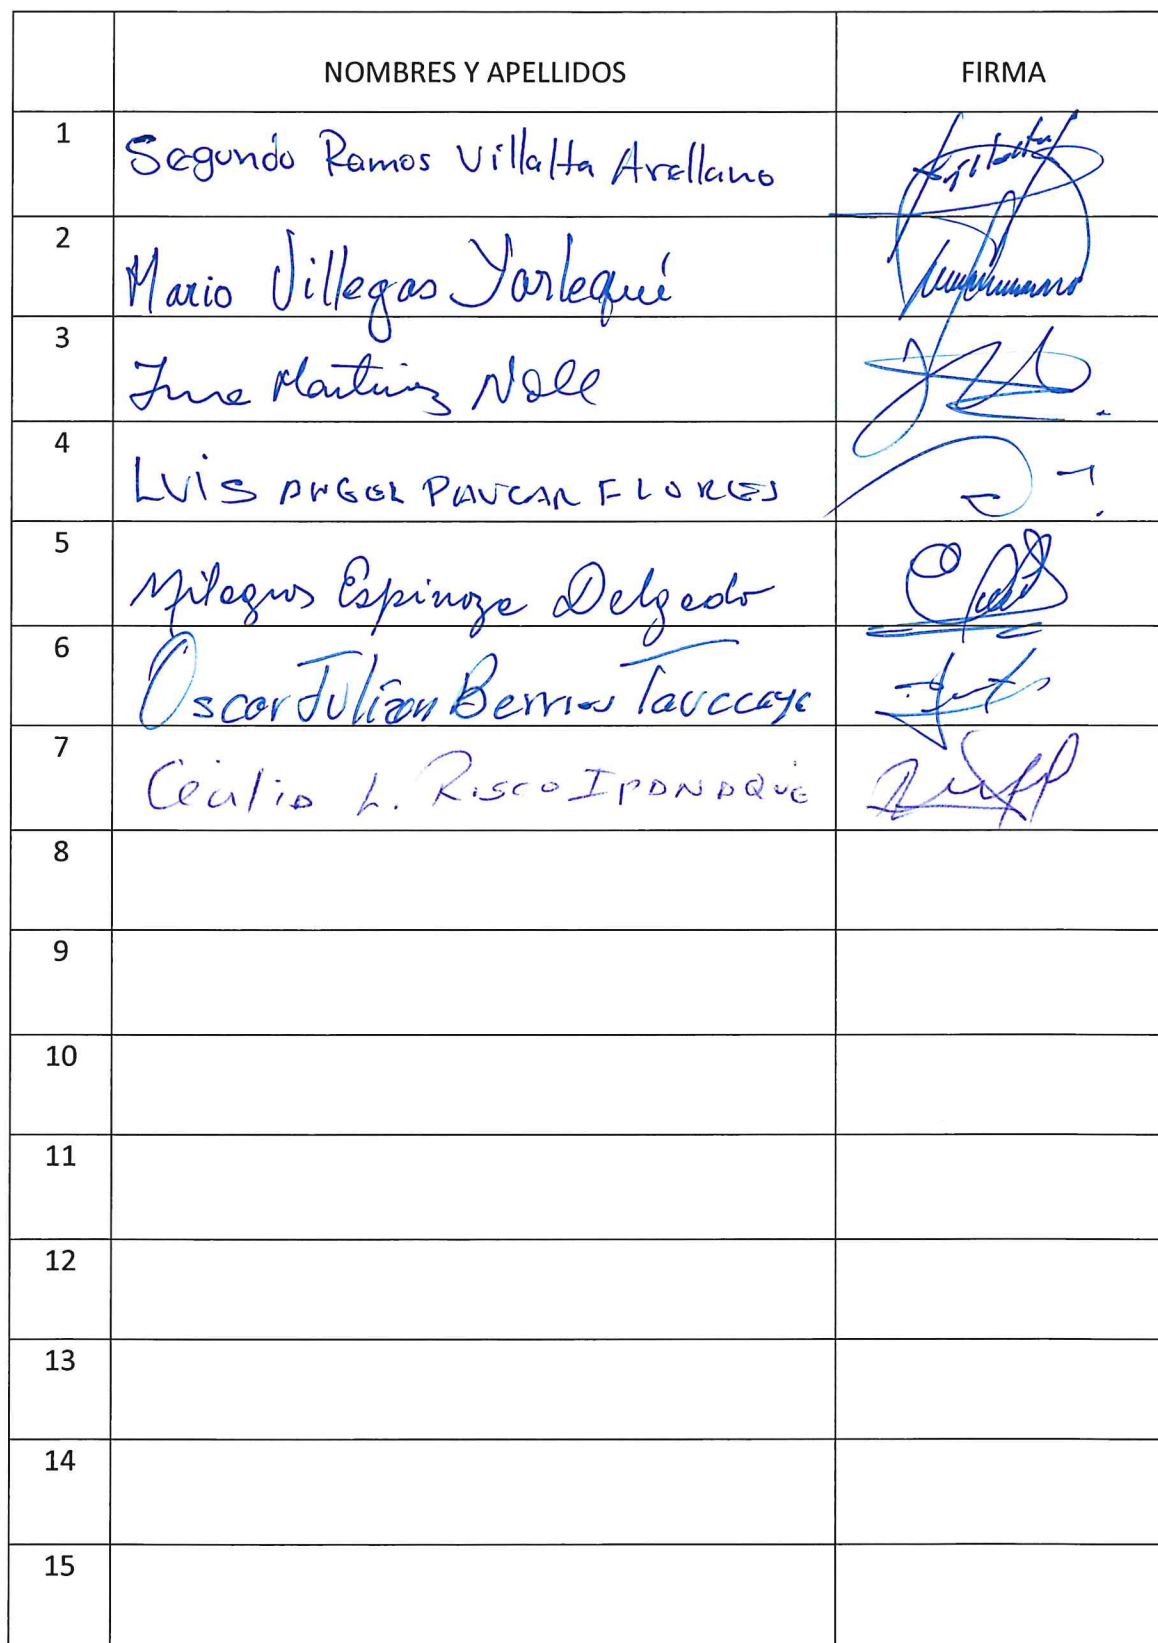 NOMBRES Y APELLIDOS FIRMA
1 Segundo Ramos Villalta Arellano
2 Mario Villegas Yarlequé
3 Martinez
4 LUIS ANGEL PAUCAR FLORES
5 Milagros Espinoza Delgado
6 Oscar Julian Berrios Tauccaya
7 Cecilia L. RISCO IPANAQUE
8
9
10
11
12
13
14
15